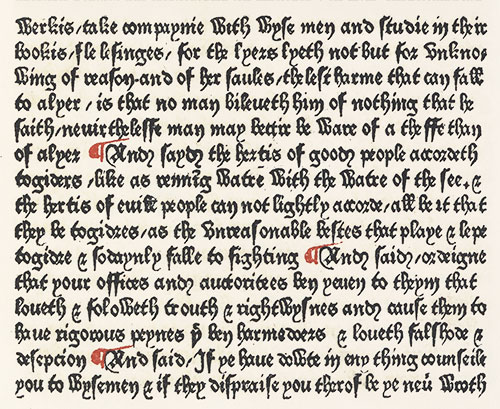 Werkis/take companye with wyse men and studie in their
bookis/fle lesinges/ for the lyers lyeth not but for vnkno,
wing of reason and of her saules/the lest harme that can fall
to alyer / is that no man bileueth him of nothing that he
saith/neuirthelesse man may bettir be ware of a theffe than
of alyer ¶ And sayd the hertis of good people accordeth
togiders/like as rennīg watre with the watre of the see. &
the hertis of euill people can not lightly accorde/all be it that
they be togidres/as the vnreasonable bestes that playe & lepe
togidre & sodaynly falle to fighting ¶ And said/ordeigne
that your offices and auctoritees ben yeuen to theym that
loueth & foloweth trouth & rightwysnes and cause them to
haue rigorous peynes þᵗ ben harmedoers & loueth falshode &
desepcion ¶ And said/If ye haue dowte in eny thing counseile
you to wysemen & if they dispraise you therof be ye neū wroth